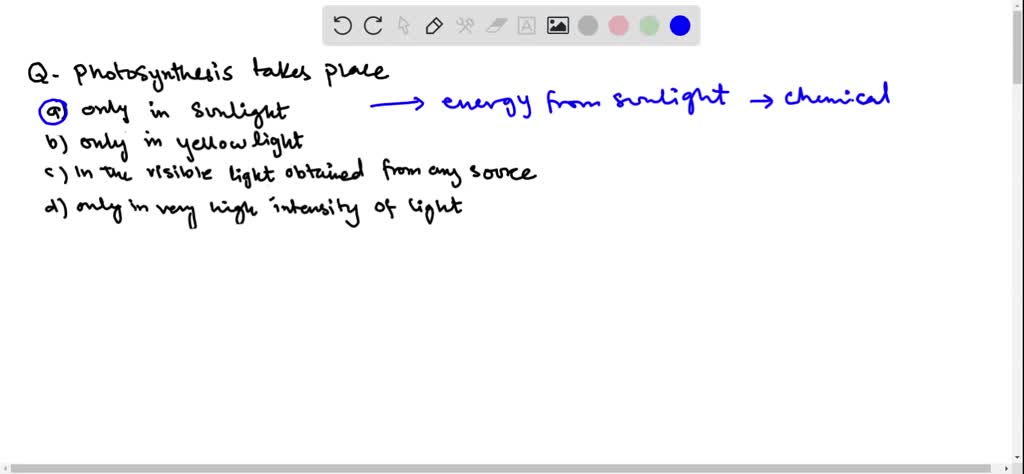 Q- Photosynthesis takes place
a) only in Sunlight → energy from sunlight → chemical
b) only in yellow light
c) In the visible light obtained from any source
d) only in very high intensity of light